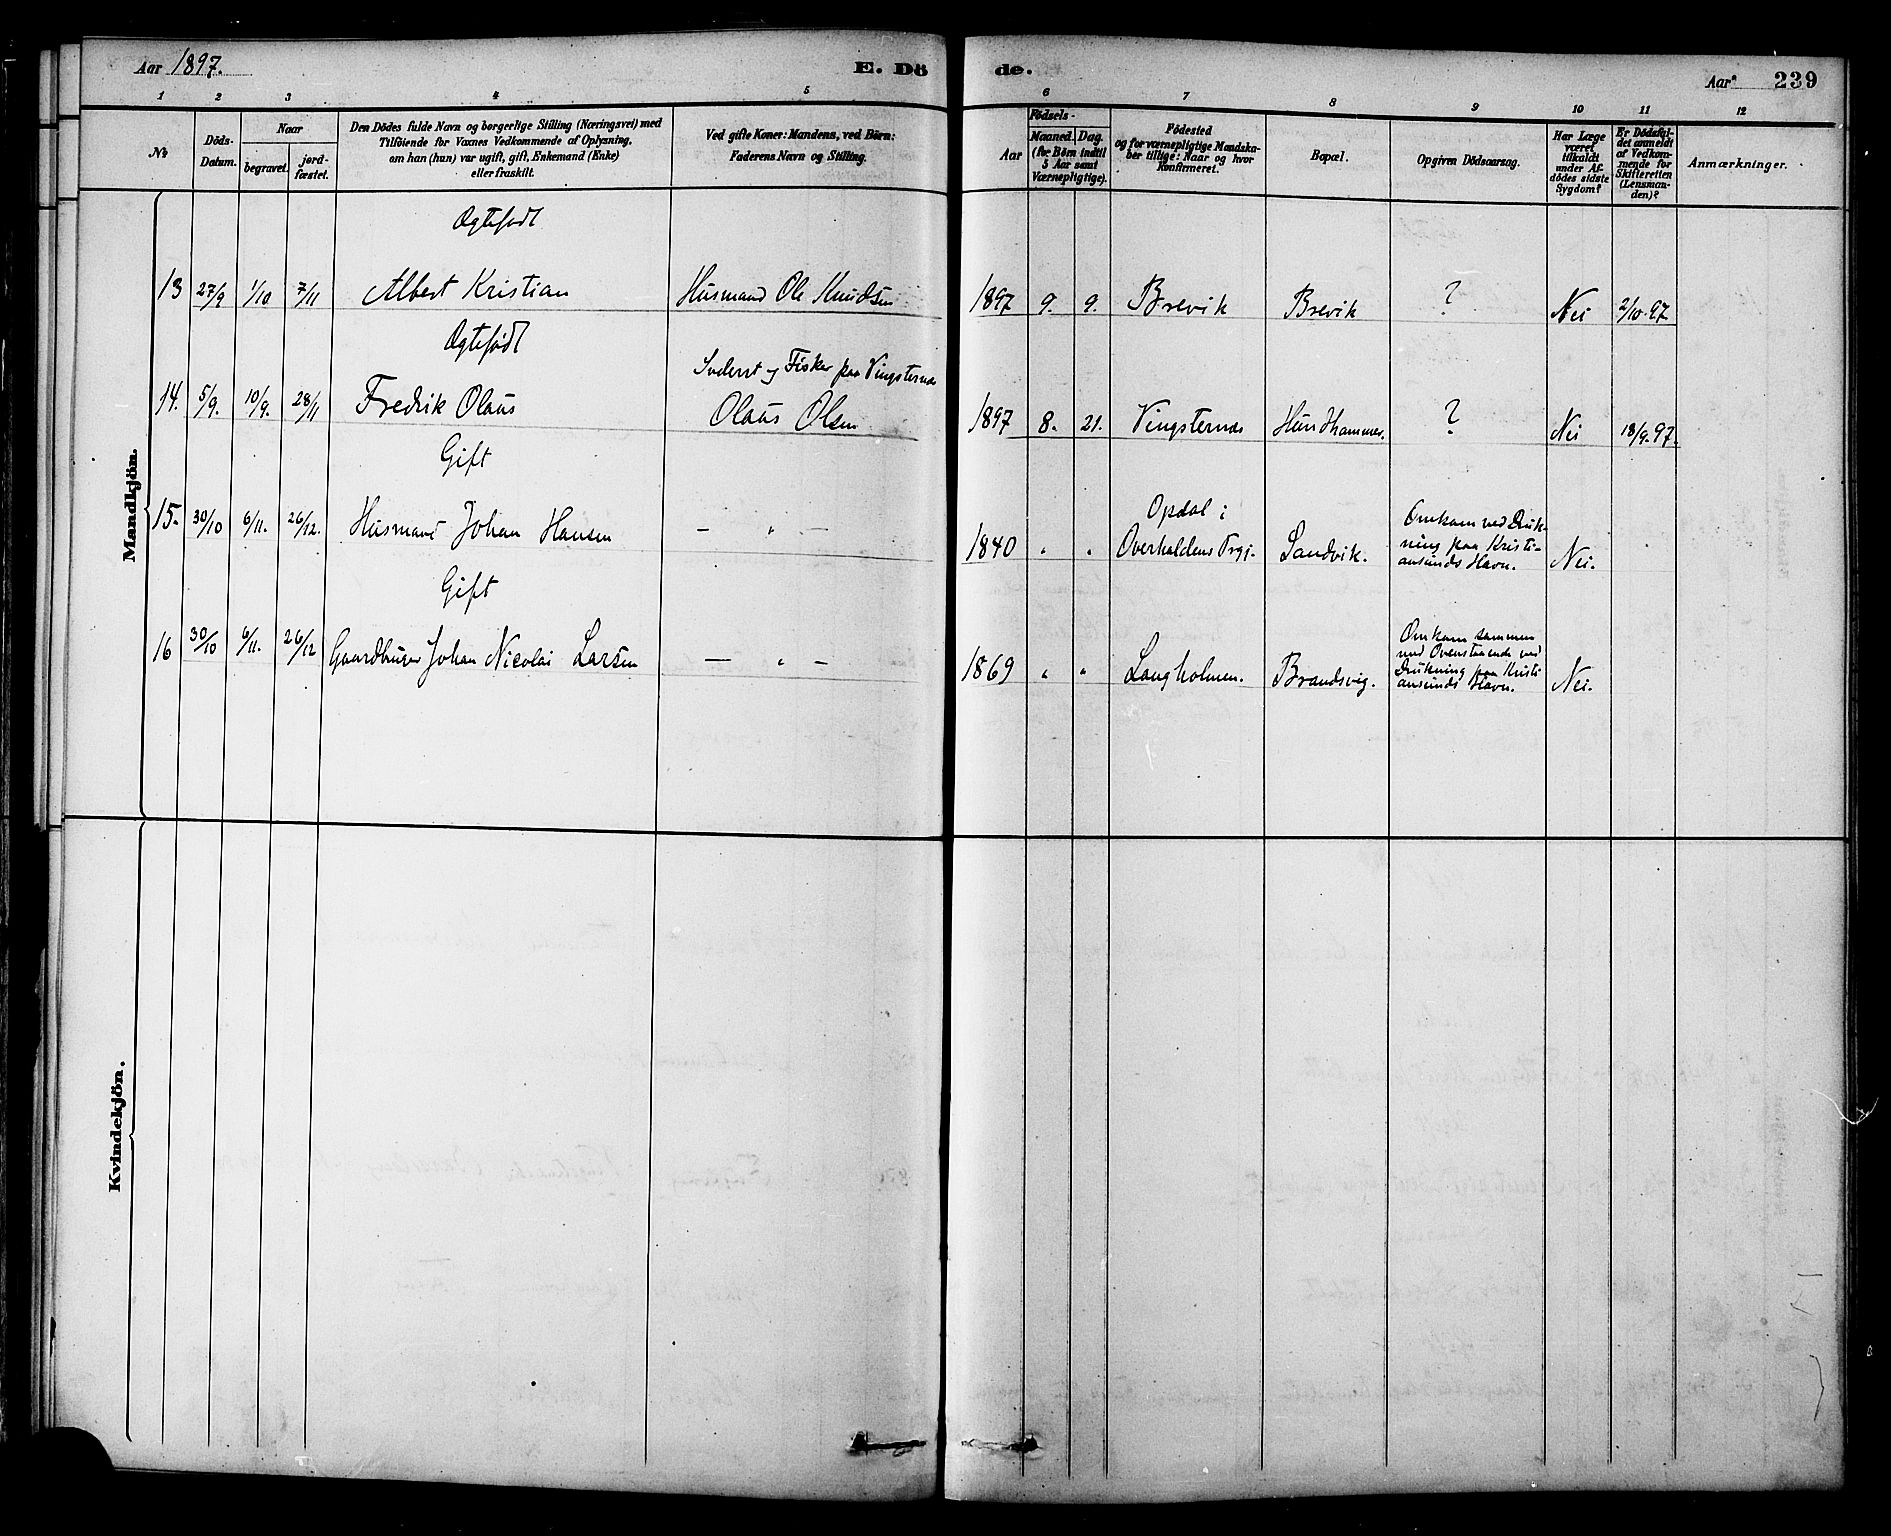 Aar 1897.
E. Dö
de.
Aar
239
1 2 3 4 5 6 7 8 9 10 11 12
No.
Döds-
Datum.
Naar
begravet.
jord-
fæstet.
Den Dödes fulde Navn og borgerlige Stilling (Næringsvei) med
Tilföiende for Voxnes Vedkommende af Oplysning,
om han (hun) var ugift, gift, Enkemand (Enke)
eller fraskilt.
Ved gifte Koner: Mandens, ved Börn:
Faderens Navn og Stilling.
Födsels-
Aar
Maaned.
Dag.
(for Börn indtil
5 Aar samt
Værnepligtige).
Födested
og for værnepligtige Mandska-
ber tillige: Naar og hvor
Konfirmeret.
Bopæl.
Opgiven Dödsaarsag.
Har Læge
været
tilkaldt
under Af-
dödes sidste
Sygdom?
Er Dödsfal-
det anmeldt
af Vedkom-
mende for
Skifteretten
(Lensman-
den)?
Anmærkninger.
Mandkjön.
Ægtefødt
13 27/9 1/10 7/11 Albert Kristian Husmand Ole Knudsen 1897 9. 9. Brevik Brevik ? Nei 2/10.97
Ægtefødt
Inderst og Fisker paa Vingsternæs
14. 5/9. 10/9. 28/11 Fredrik Olaus Olaus Olsen 1897 8. 21. Vingsternæs Hundhammer. ? Nei 18/9.97.
Gift
15. 30/10 6/11. 26/12. Husmand Johan Hansen — " — 1840 " " Opdal i
Overhaldens Prgj. Sandvik. Omkom ved Druk-
ning paa Kristi-
ansunds Havn. Nei.
Gift
16 30/10 6/11. 26/12 Gaardbruger Johan Nicolai Larsen — " — 1869 " " Langholmen. Brandsvig. Omkom sammen
med Ovenstaaende ved
Drukning paa Kristi
ansunds Havn. Nei.
Kvindekjön.